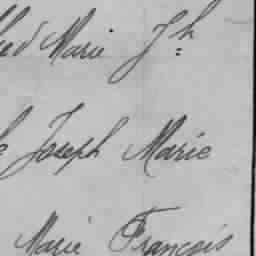 Marie Jh
Joseph Marie
Marie François